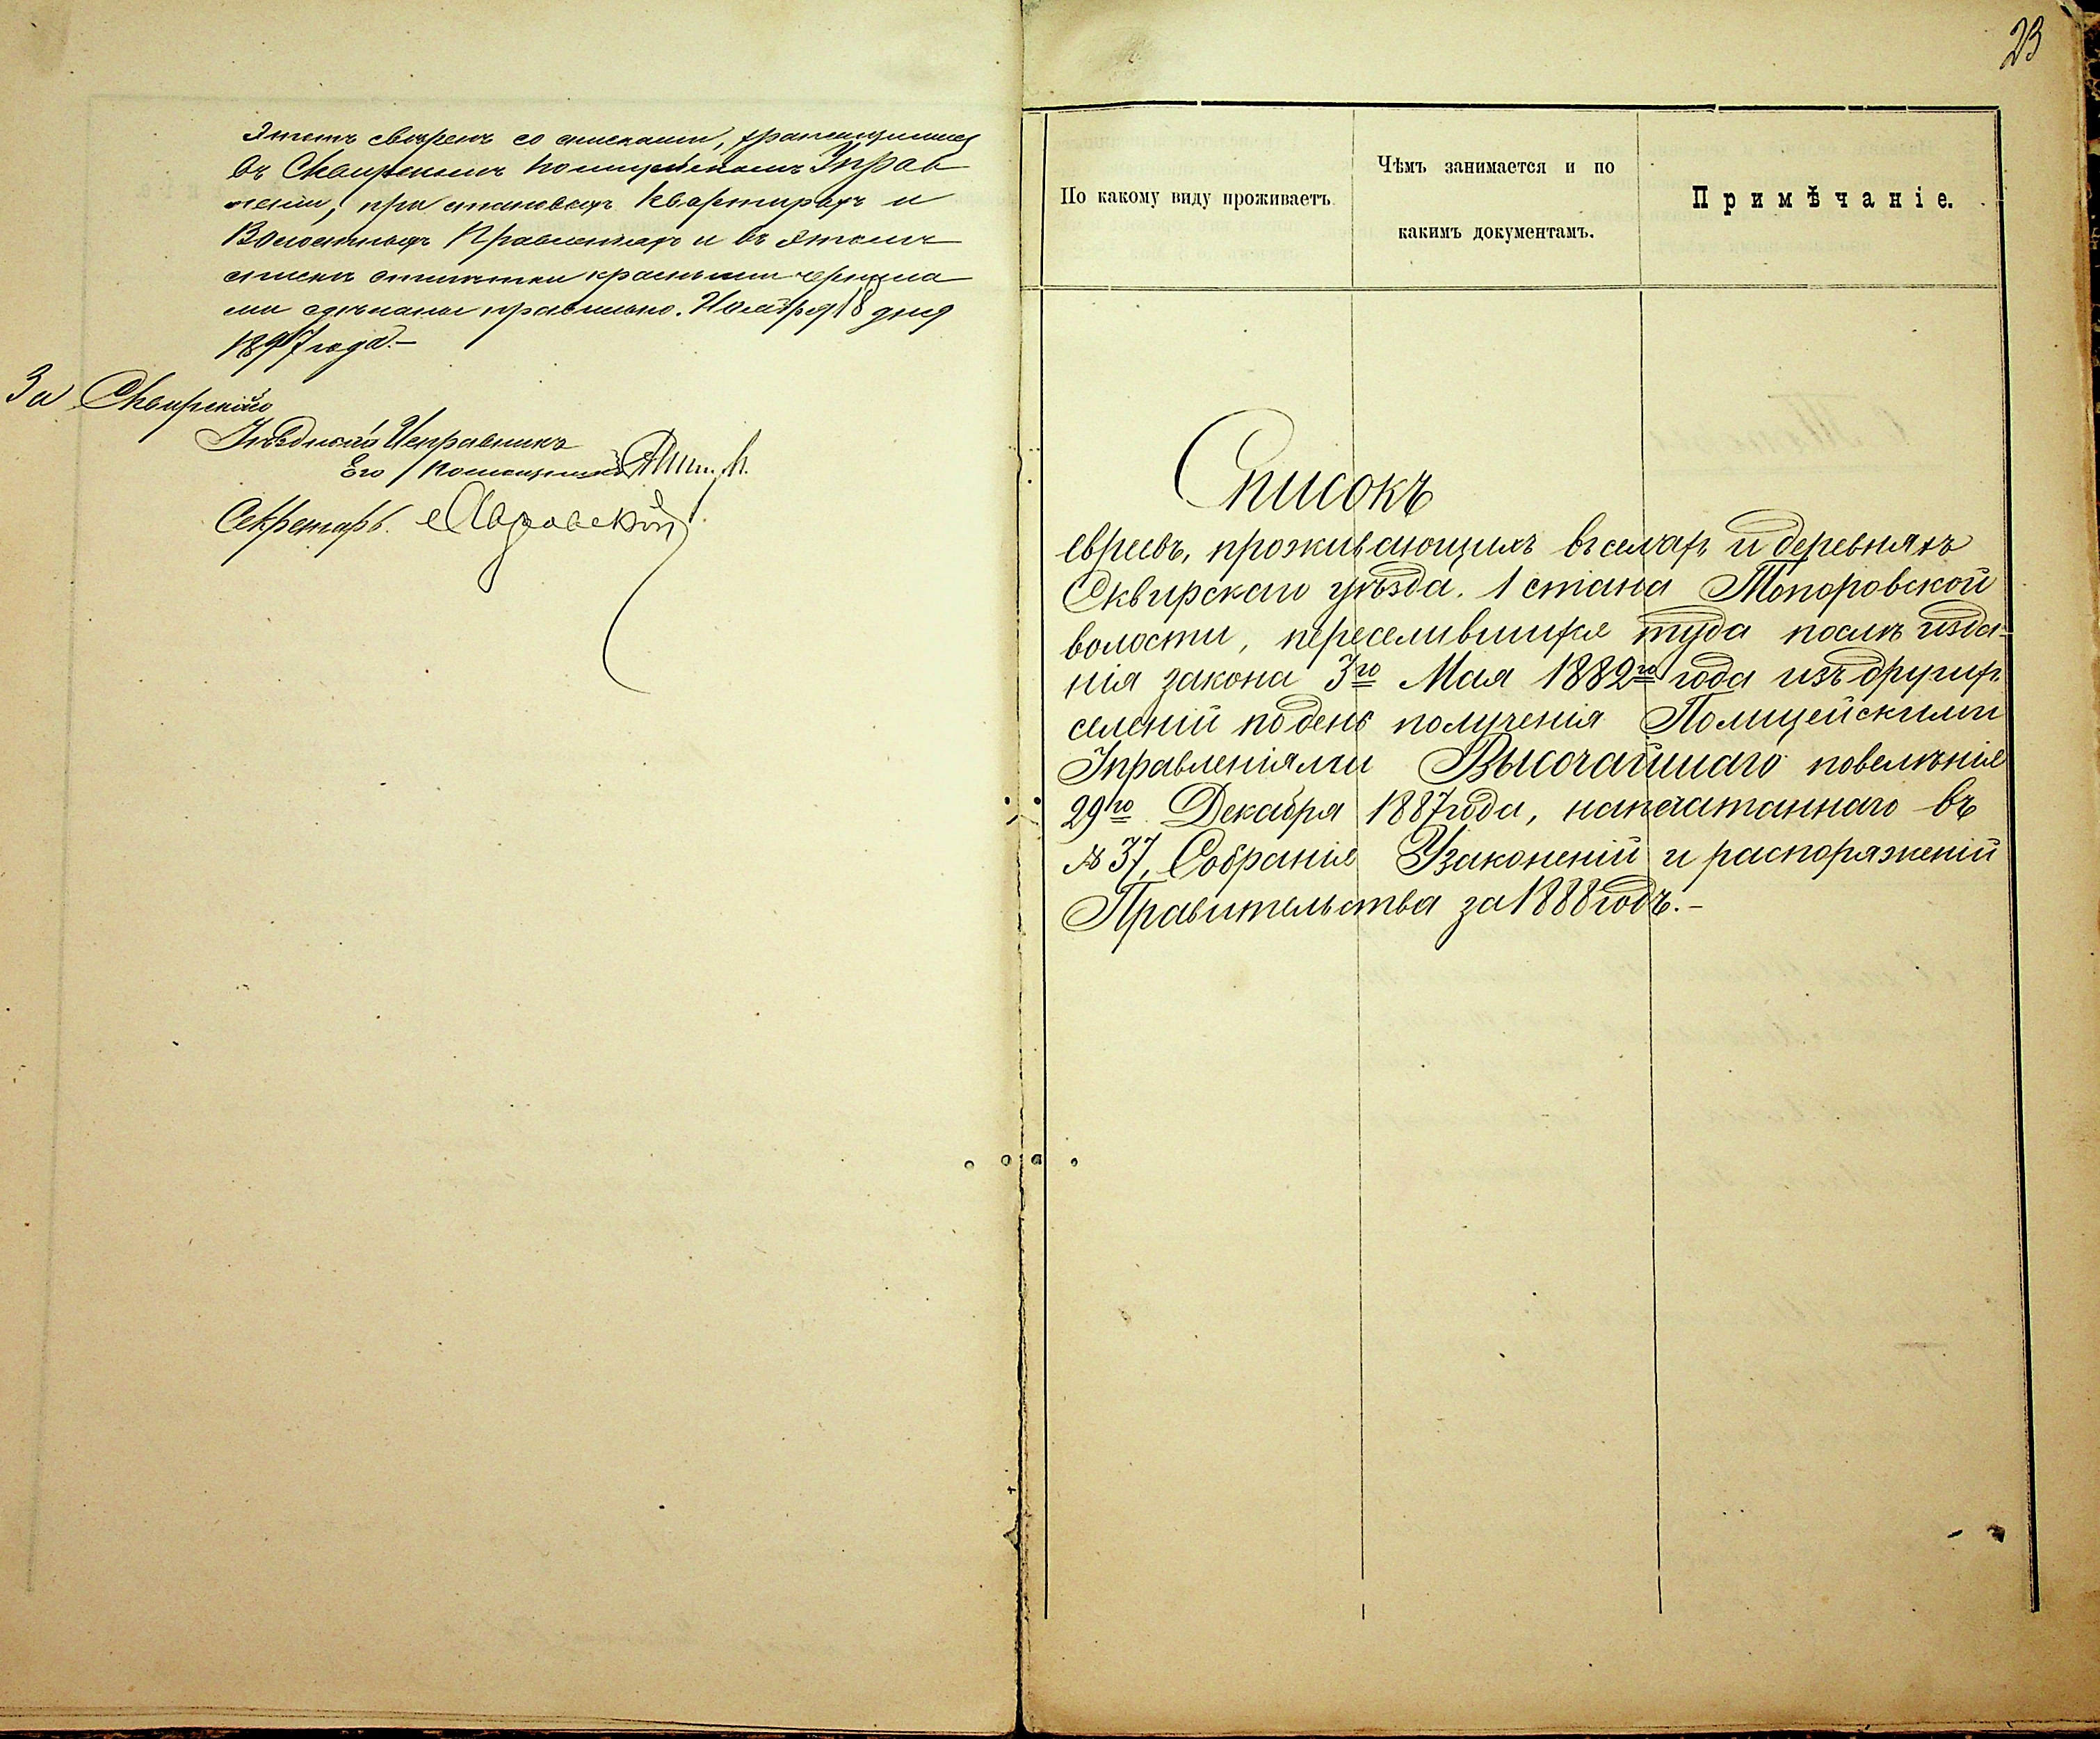 Этотъ свѣренъ со списками, хранящимися
въ Сквирскомъ Полицейскомъ Управ
леніи, при становыхъ квартирахъ и
Волостныхъ Правленіяхъ и въ этомъ
спискѣ отмѣтки красными чернила
ми сдѣланы правильно. Ноября 18 дня
1897 года.—
За Сквирскаго
Уѣзднаго Исправника
Его Помощникъ
Секретарь
23
По какому виду проживаетъ
Чѣмъ занимается и по
какимъ документамъ.
Примѣчаніе.
Списокъ
евреевъ, проживающихъ въ селахъ и деревняхъ
Сквирскаго уѣзда. 1 стана Топоровской
волости, переселившихся туда послѣ изда-
нія закона 3го Мая 1882го года изъ другихъ
селеній по день полученія Полицейскими
Управленіями Высочайшаго повелѣнія
29го Декабря 1887 года, напечатаннаго въ
№ 37, Собранія Узаконеній и распоряженій
Правительства за 1888 годъ.—